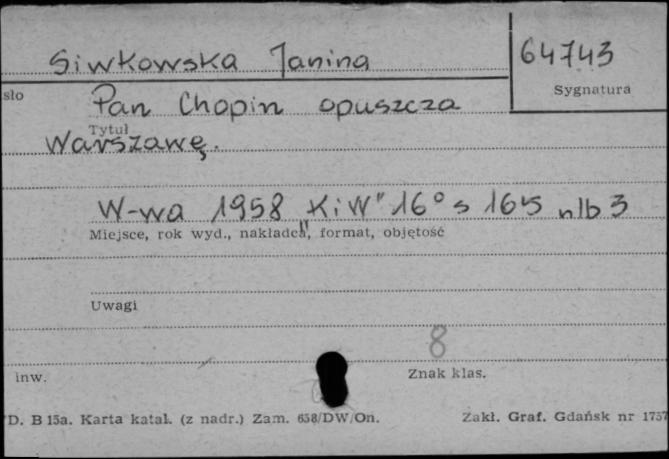 Siwkowska Janina
64743
Sygnatura
sło
Pan Chopin opuszcza
Tytuł
Warszawę.
W-wa 1958 „KiW" 16° s 165 nlb 3
Miejsce, rok wyd., nakładca, format, objętość
Uwagi
8
inw.
Znak klas.
D. B 15a. Karta katal. (z nadr.) Zam. 658/DW/On.
Zakł. Graf. Gdańsk nr 1757